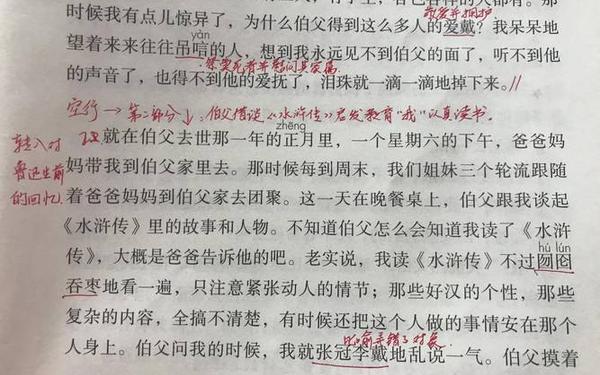 时候我有点儿惊异了，为什么伯父得到这么多人的爱戴？我呆呆地
yàn
望着来来往往吊唁的人，想到我永远见不到伯父的面了，听不到他
的声音了，也得不到他的爱抚了，泪珠就一滴一滴地掉下来。//
空行→第二部分↓：伯父借谈《水浒传》启发教育“我”认真读书。
zhēng
就在伯父去世那一年的正月里，一个星期六的下午，爸爸妈
转入对
鲁迅生前
的回忆
妈带我到伯父家里去。那时候每到周末，我们姐妹三个轮流跟随
着爸爸妈妈到伯父家去团聚。这一天在晚餐桌上，伯父跟我谈起
《水浒传》里的故事和人物。不知道伯父怎么会知道我读了《水浒
传》，大概是爸爸告诉他的吧。老实说，我读《水浒传》不过囫囵
hú lún
吞枣地看一遍，只注意紧张动人的情节；那些好汉的个性，那些
复杂的内容，全搞不清楚，有时候还把这个人做的事情安在那个
比喻弄错了对象
人身上。伯父问我的时候，我就张冠李戴地乱说一气。伯父摸着